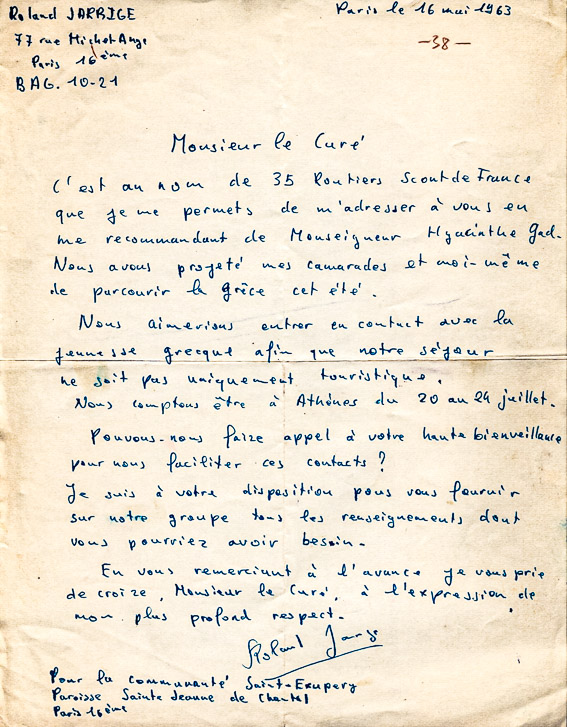 Roland JARRIGE
Paris le 16 mai 1963
77 rue Michel Ange
-38-
Paris 16ème
BAG. 10-21
Monsieur le Curé
C'est au nom de 35 Routiers Scout de France
que je me permets de m'adresser à vous en
me recommandant de Monseigneur Hyacinthe Gad.
Nous avons projeté mes camarades et moi-même
de parcourir la Grèce cet été.
Nous aimerions entrer en contact avec la
jeunesse grecque afin que notre séjour
ne soit pas uniquement touristique.
Nous comptons être à Athènes du 20 au 24 juillet.
Pouvons-nous faire appel à votre haute bienveillance
pour nous faciliter ces contacts ?
Je suis à votre disposition pous vous fournir
sur notre groupe tous les renseignements dont
vous pourriez avoir besoin.
En vous remerciant à l'avance je vous prie
de croire, Monsieur le Curé, à l'expression de
mon plus profond respect.
Roland
Pour la communauté Saint-Exupery
Paroisse Sainte Jeanne de Chantal
Paris 16ème